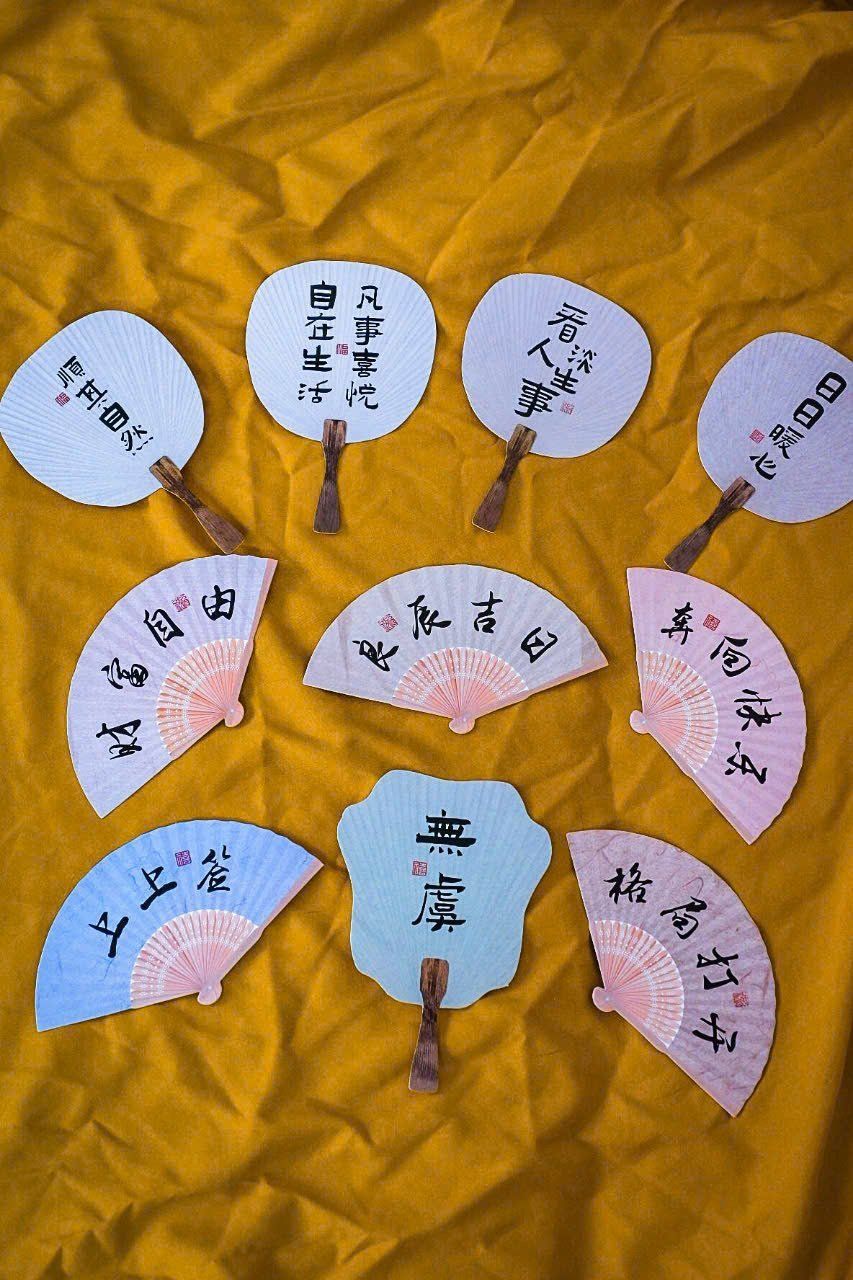 順其自然
凡事喜悦
自在生活
看淡人生事
日日暖心
财富自由
良辰吉日
奔向快乐
上上签
無虞
格局打开